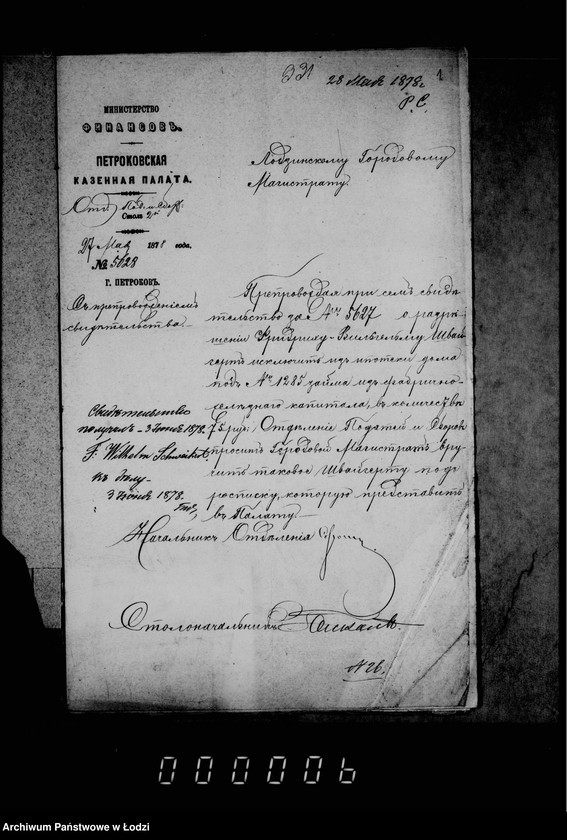 28 Мая 1878 г
1
Р. С.
МИНИСТЕРСТВО
ФИНАНСОВЪ.
ПЕТРОКОВСКАЯ
КАЗЕННАЯ ПАЛАТА.
Отд.
Столъ 2й
27 Мая 1878 года.
№ 5628
Г. ПЕТРОКОВЪ.
Съ препровожденіемъ
свидѣтельства.
Лодзинскому Городовому
Магистрату.
Препровождая при семъ свидѣ
тельство за № 5627 о разрѣ
шеніи Фридриху-Вильгельму Швай
герту исключить изъ ипотеки дома
подъ № 1285 займа изъ фабрично-
желѣзнаго капитала, въ количествѣ
75 руб: Отдѣленіе Податей и Сборовъ
проситъ Городовой Магистратъ вру
чить таковое Швайгерту подъ
росписку, которую представить
въ Палату.
Свидѣтельство
получалъ - 3 Іюня 1878.
F. Wilhelm
Къ дѣлу
3 Іюня 1878.
Начальникъ Отдѣленія
Столоначальникъ
№ 26.
000006
Archiwum Państwowe w Łodzi